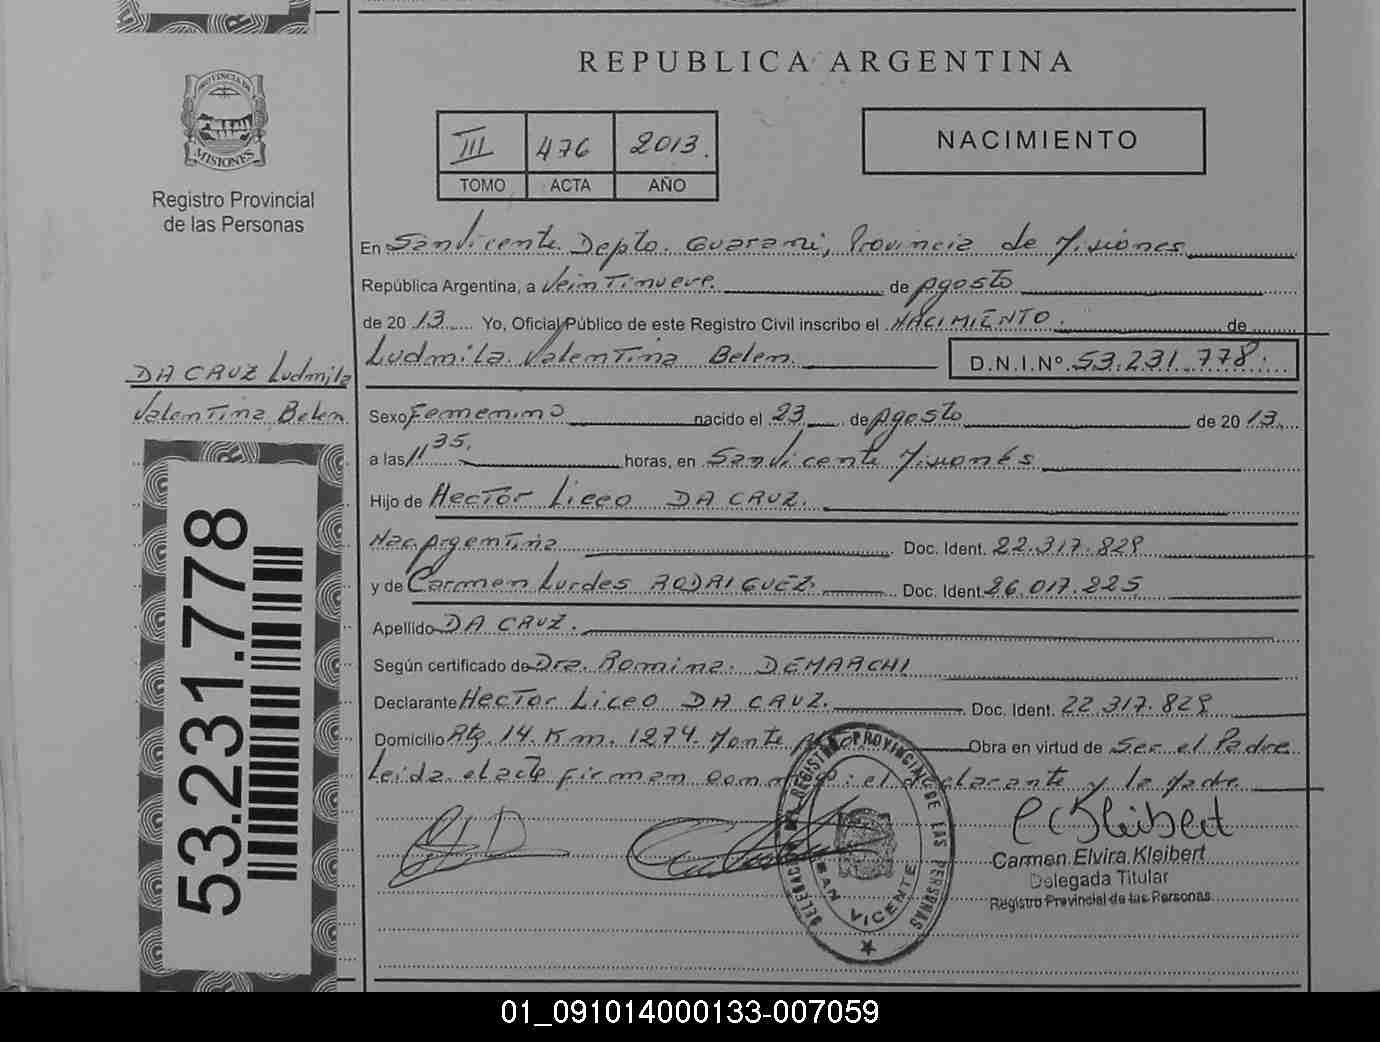 REPUBLICA ARGENTINA
PROVINCIA DE
MISIONES
Registro Provincial
de las Personas
III 476 2013.
TOMO ACTA AÑO
NACIMIENTO
En San Vicente Depto. Guarani, Provincia de Misiones
República Argentina, a Veintinueve de Agosto
de 2013 Yo, Oficial Público de este Registro Civil inscribo el NACIMIENTO. de
Ludmila Valentina Belen. D.N.I.Nº 53.231.778.
DA CRUZ Ludmila
Valentina Belen
Sexo Femenino nacido el 23 de Agosto de 2013.
a las 11 35. horas, en San Vicente Misiones
Hijo de Hector Liceo DA CRUZ.
Nac. Argentina Doc. Ident. 22.317.829
y de Carmen Lurdes RODRIGUEZ. Doc. Ident. 26.017.225
Apellido DA CRUZ.
Según certificado de Dra. Romina DEMARCHI
Declarante Hector Liceo DA CRUZ. Doc. Ident. 22.317.829
Domicilio Rta. 14. Km. 1274. Monte Obra en virtud de Ser el Padre
Leida el acta firman conmigo: el declarante y la Madre.
53.231.778
DELEGACION DEL REGISTRO PROVINCIAL DE LAS PERSONAS
SAN VICENTE
C Kleibert
Carmen Elvira Kleibert
Delegada Titular
Registro Provincial de las Personas
01_091014000133-007059